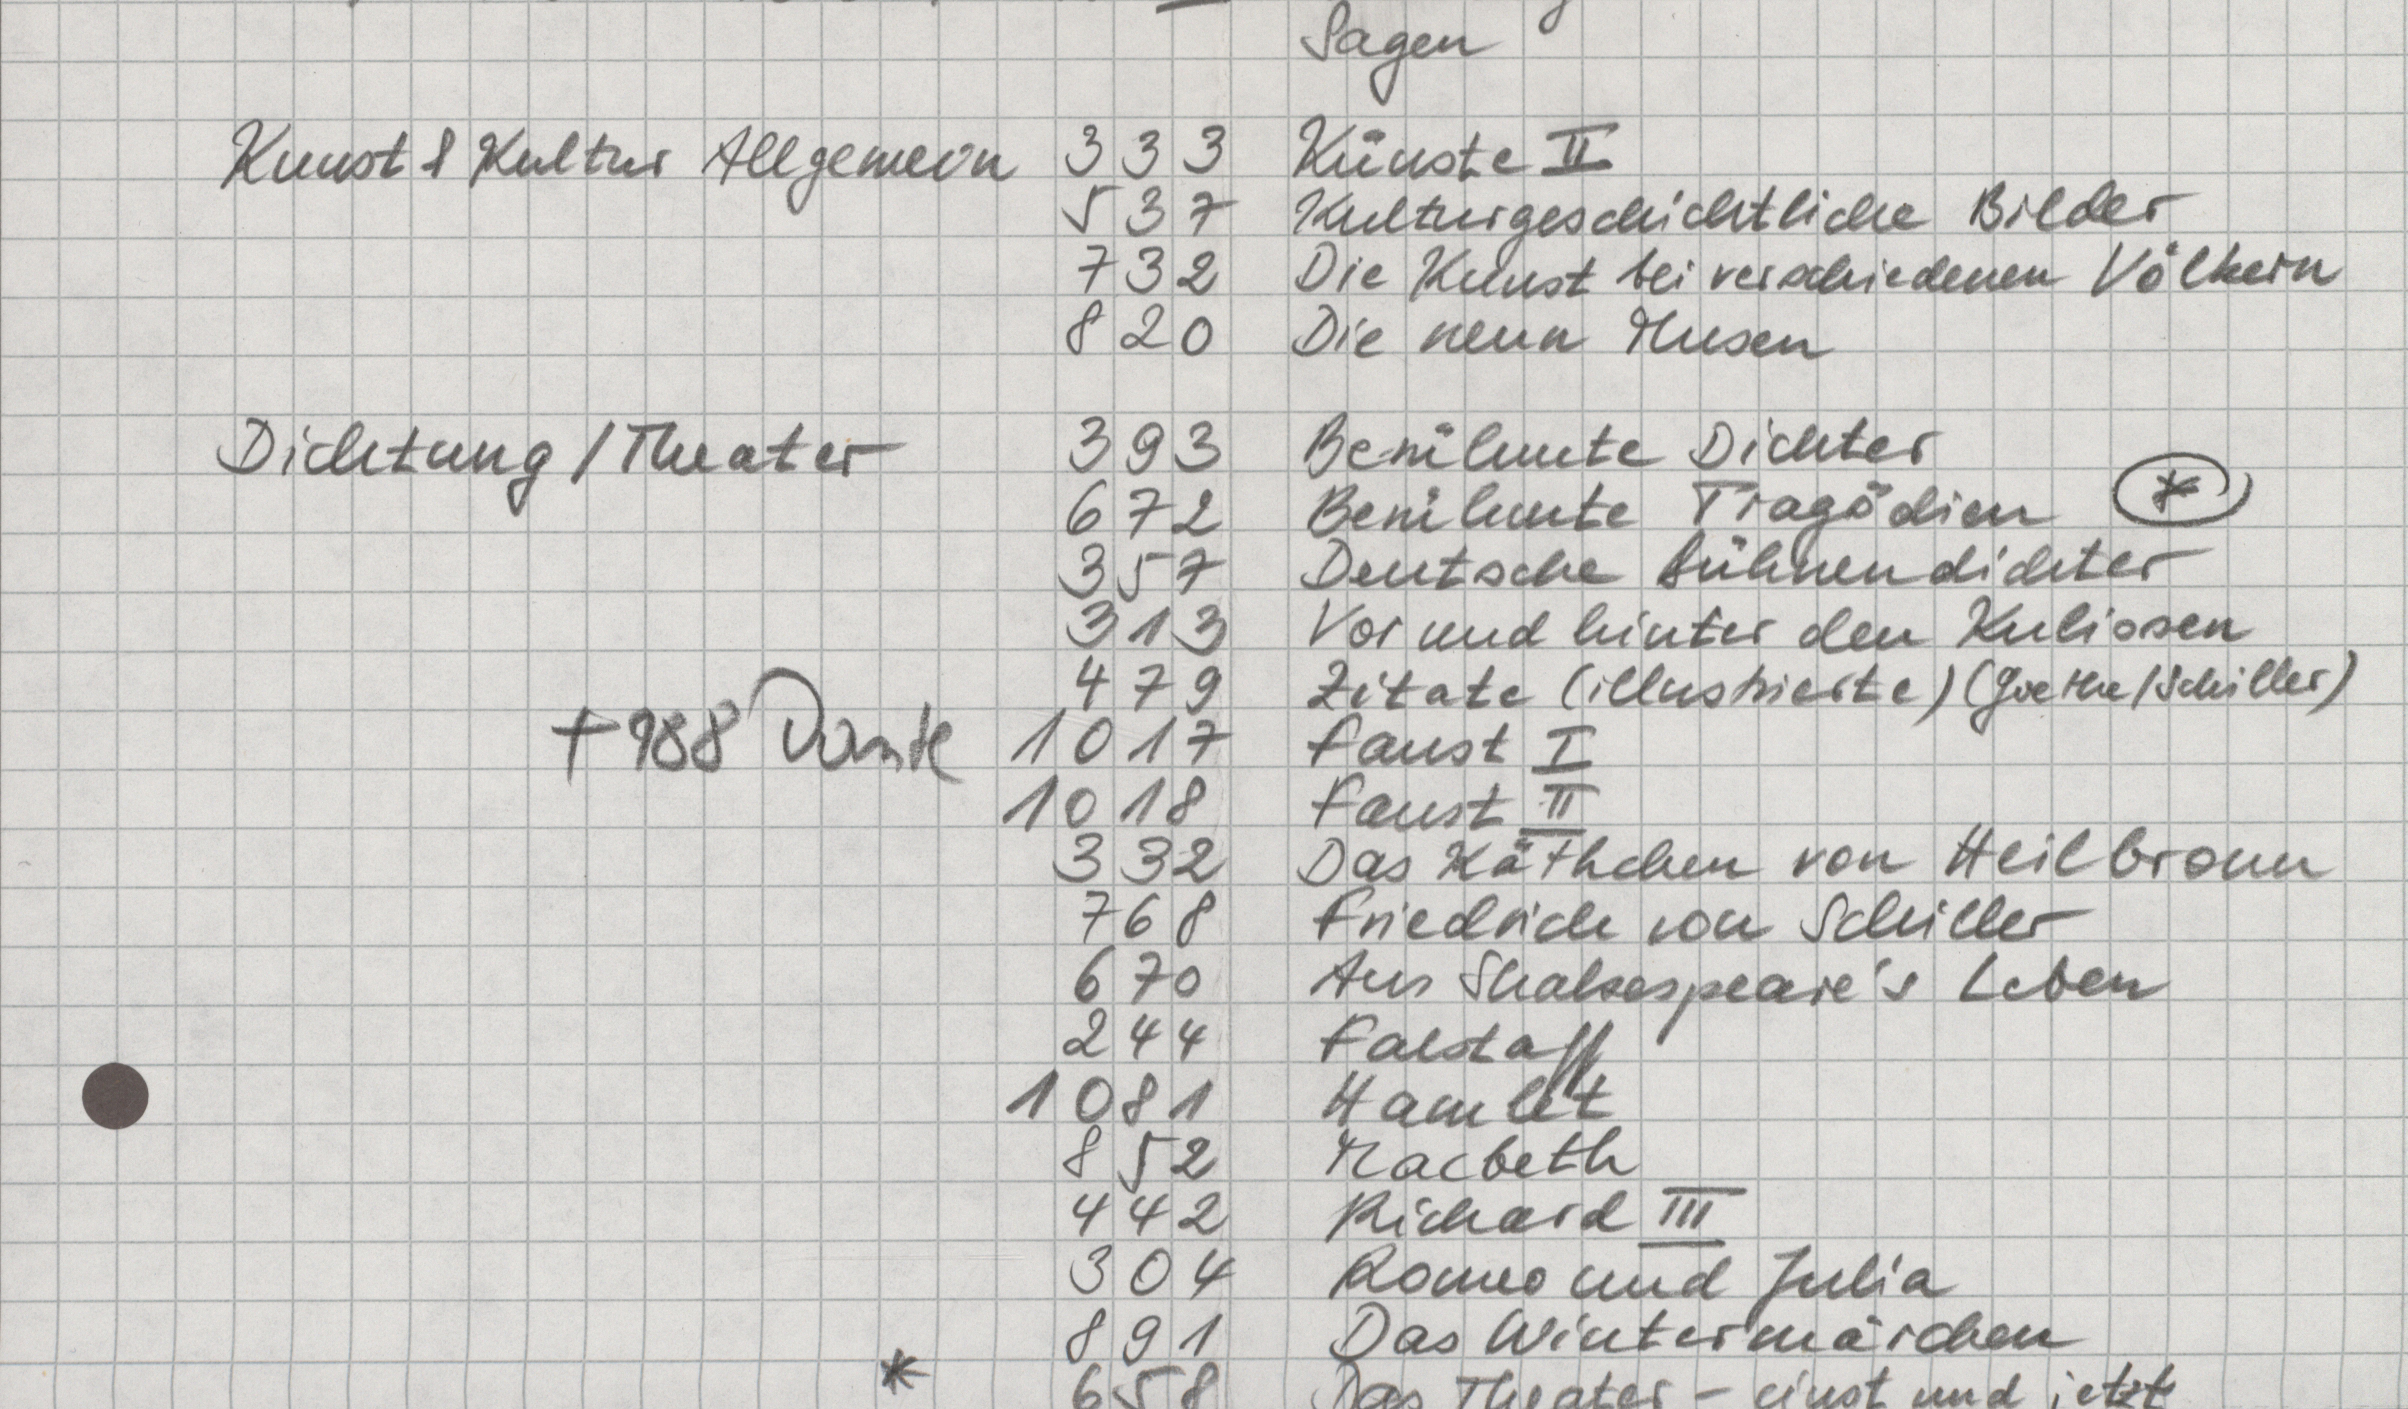 Sagen
Kunst & Kultur Allgemein 333 Künste II
537 Kulturgeschichtliche Bilder
732 Die Kunst bei verschiedenen Völkern
820 Die neun Musen
Dichtung / Theater 393 Berühmte Dichter
672 Berühmte Tragödien *
357 Deutsche Bühnendichter
313 Vor und hinter den Kulissen
479 Zitate (illustrierte) (Goethe/Schiller)
+ 988 Dante 1017 Faust I
1018 Faust II
332 Das Käthchen von Heilbronn
768 Friedrich von Schiller
670 Aus Shakespeare's Leben
244 Falstaff
1081 Hamlet
852 Macbeth
442 Richard III
304 Romeo und Julia
891 Das Wintermärchen
* 658 Das Theater - einst und jetzt